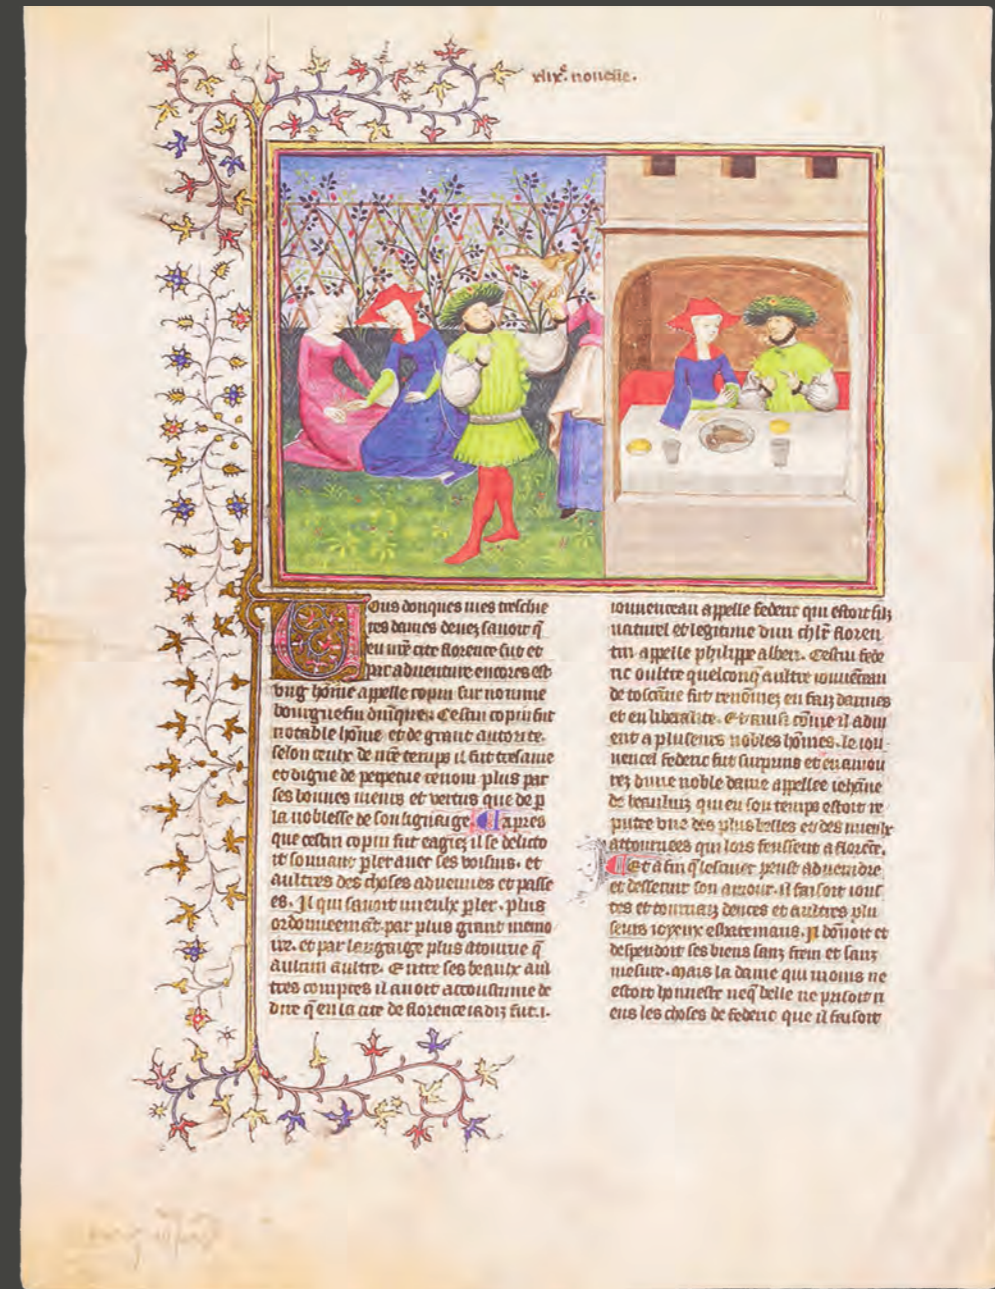 xlixe. nouelle.
Vous donques mes treschie
res dames deuez sauoir q̃
en nr̃e cite florence fut et
par aduenture encores est
vng hõme appelle copin surnomme
bourguesin dniques. Cestui copin fut
notable hõme et de grant autorite.
selon ceulx de nr̃e temps il fut tresame
et digne de perpetue renom plus par
ses bonnes meurs et vertus que de p
la noblesse de son lignaige. Et apres
que cestui copin fut eagie; il se delicto
it souuant p̱ler auec ses voisins. et
aultres des choses aduenues et passe
es. Il qui sauoit mieulx p̱ler. plus
ordonneemẽt. par plus grant memo
ire. et par langaige plus atourne q̃
aulcun aultre. Entre ses beaulx aul
tres comptes il auoit accoustume de
dire q̃ en la cite de florence iadiz fut .i.
iouuenceau appelle federic qui estoit filz
naturel et legitime dun chlr̃ floren
tin appelle philippe alberi. Cestui fede
ric oultre quelconq̃ aultre iouuẽceau
de toscane fut renõmez en faiz darmes
et en liberalite. Et ainsi cõme il adui
ent a pluseurs nobles hõmes. le iou
uencel federic fut surpuns et enamou
rez dune noble dame appellee iehãne
de qui en son temps estoit re
putee vne des plus belles et des mieulx
attournees qui lors feussent a florẽce.
Et a fin q̃ le sauer peust aduenidre
et desseruir son amour. il faisoit ious
tes et tournaiz dances et aultres plu
seurs ioyeux esbatemans. Il dõnoit et
despendoit ses biens sanz frein et sanz
mesure. Mais la dame qui moins ne
estoit honneste neq̃ belle ne prisoit ri
ens les choses de federic que il faisoit